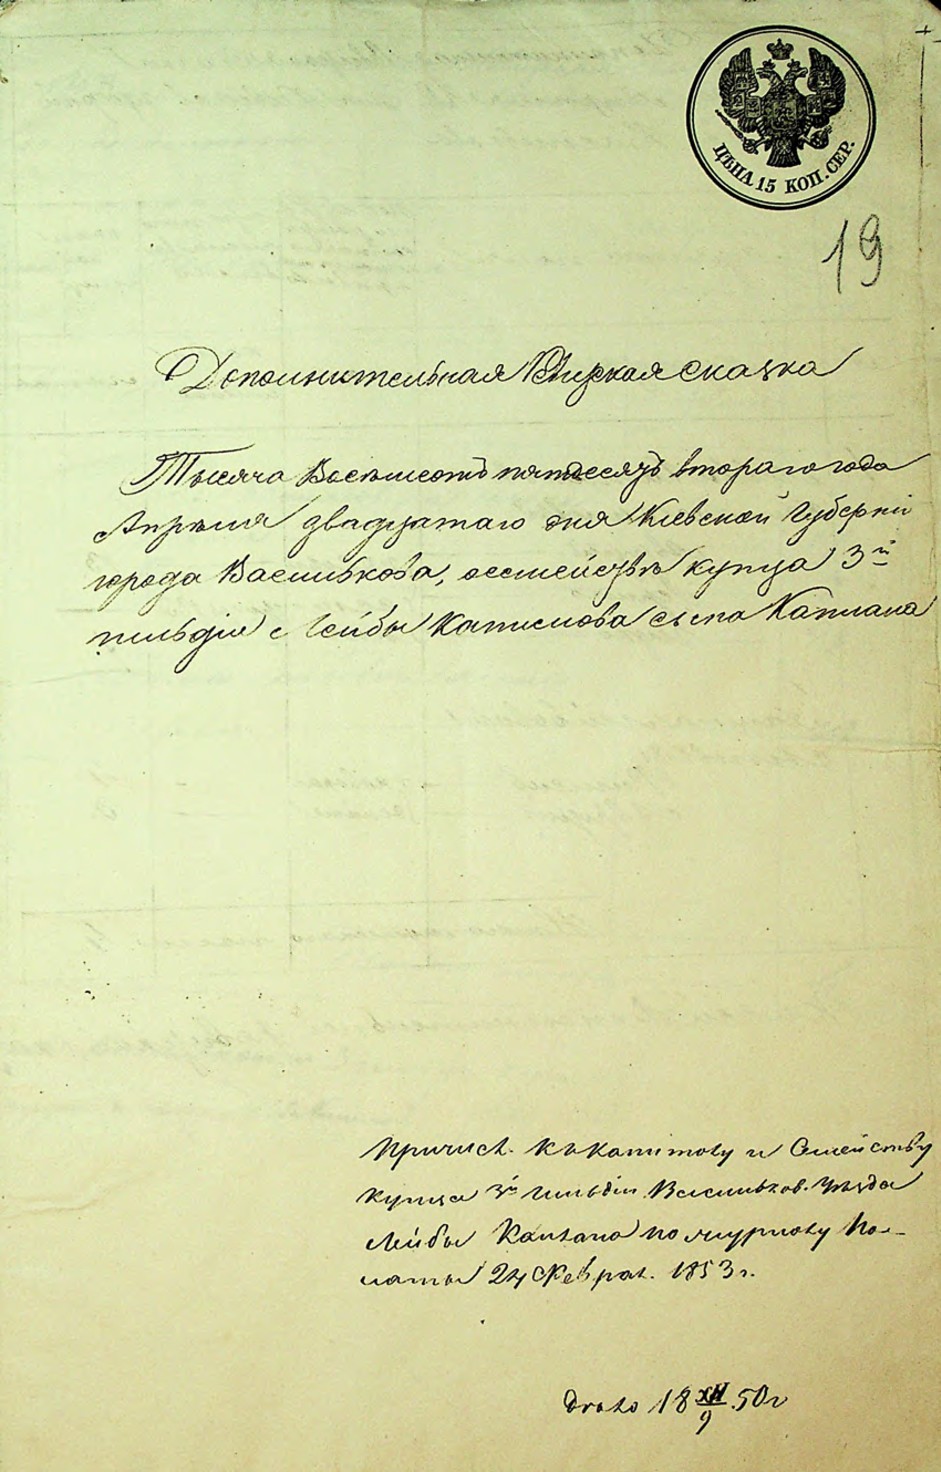 ЦѢНА 15 КОП. СЕР.
19
Дополнительная Ревизкая сказка
Тысяча Восемсотъ пятдесятъ втораго года
Апреля двадцатаго дня Кіевской Губерніи
города Василькова, о семействѣ купца 3й
гильдіи Лейбы сына Каплана
Причисл. къ капиталу и Семейству
купца 3й гильдіи Васильков. уѣзда
Лейбы Каплана по журналу Па-
латы 24 Феврал. 1853 г.
18 XII/9 50 г